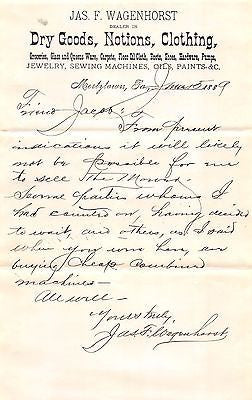 JAS. F. WAGENHORST
DEALER IN
Dry Goods, Notions, Clothing,
Groceries, Glass and Queens Ware, Carpets, Floor Oil Cloth, Boots, Shoes, Hardware, Pumps,
JEWELRY, SEWING MACHINES, OILS, PAINTS-&C.
Mertztown, Pa., 1889
Friend Jacob:
From present
indications it will likely
not be possible for me
to sell the
Several parties whom I
had counted on, having decided
to wait, and others, as I said
when you were here, are
buying cheap combined
machines—
All well—
Yours truly,
Jas. F. Wagenhorst